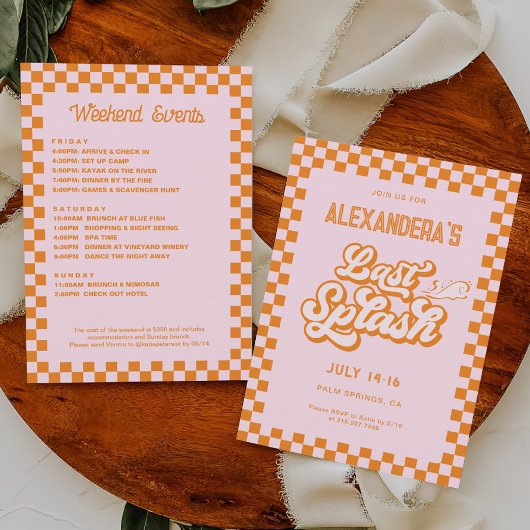 Weekend Events
FRIDAY
4:00PM: ARRIVE & CHECK IN
4:30PM: SET UP CAMP
5:50PM: KAYAK ON THE RIVER
7:00PM: DINNER BY THE FIRE
8:00PM: GAMES & SCAVENGER HUNT
SATURDAY
10:00AM BRUNCH AT BLUE FISH
1:00PM SHOPPING & SIGHT SEEING
4:00PM SPA TIME
6:30PM DINNER AT VINEYARD WINERY
9:30PM DANCE THE NIGHT AWAY
SUNDAY
11:00AM BRUNCH & MIMOSAS
2:00PM CHECK OUT HOTEL
The cost of the weekend is $350 and includes
accommodation and Sunday brunch
Please send Venmo to @katiepeterson by 05/14
JOIN US FOR
ALEXANDERA'S
Last
Splash
JULY 14-16
PALM SPRINGS, CA
Please RSVP to Katie by 5/10
at 215.267.7448